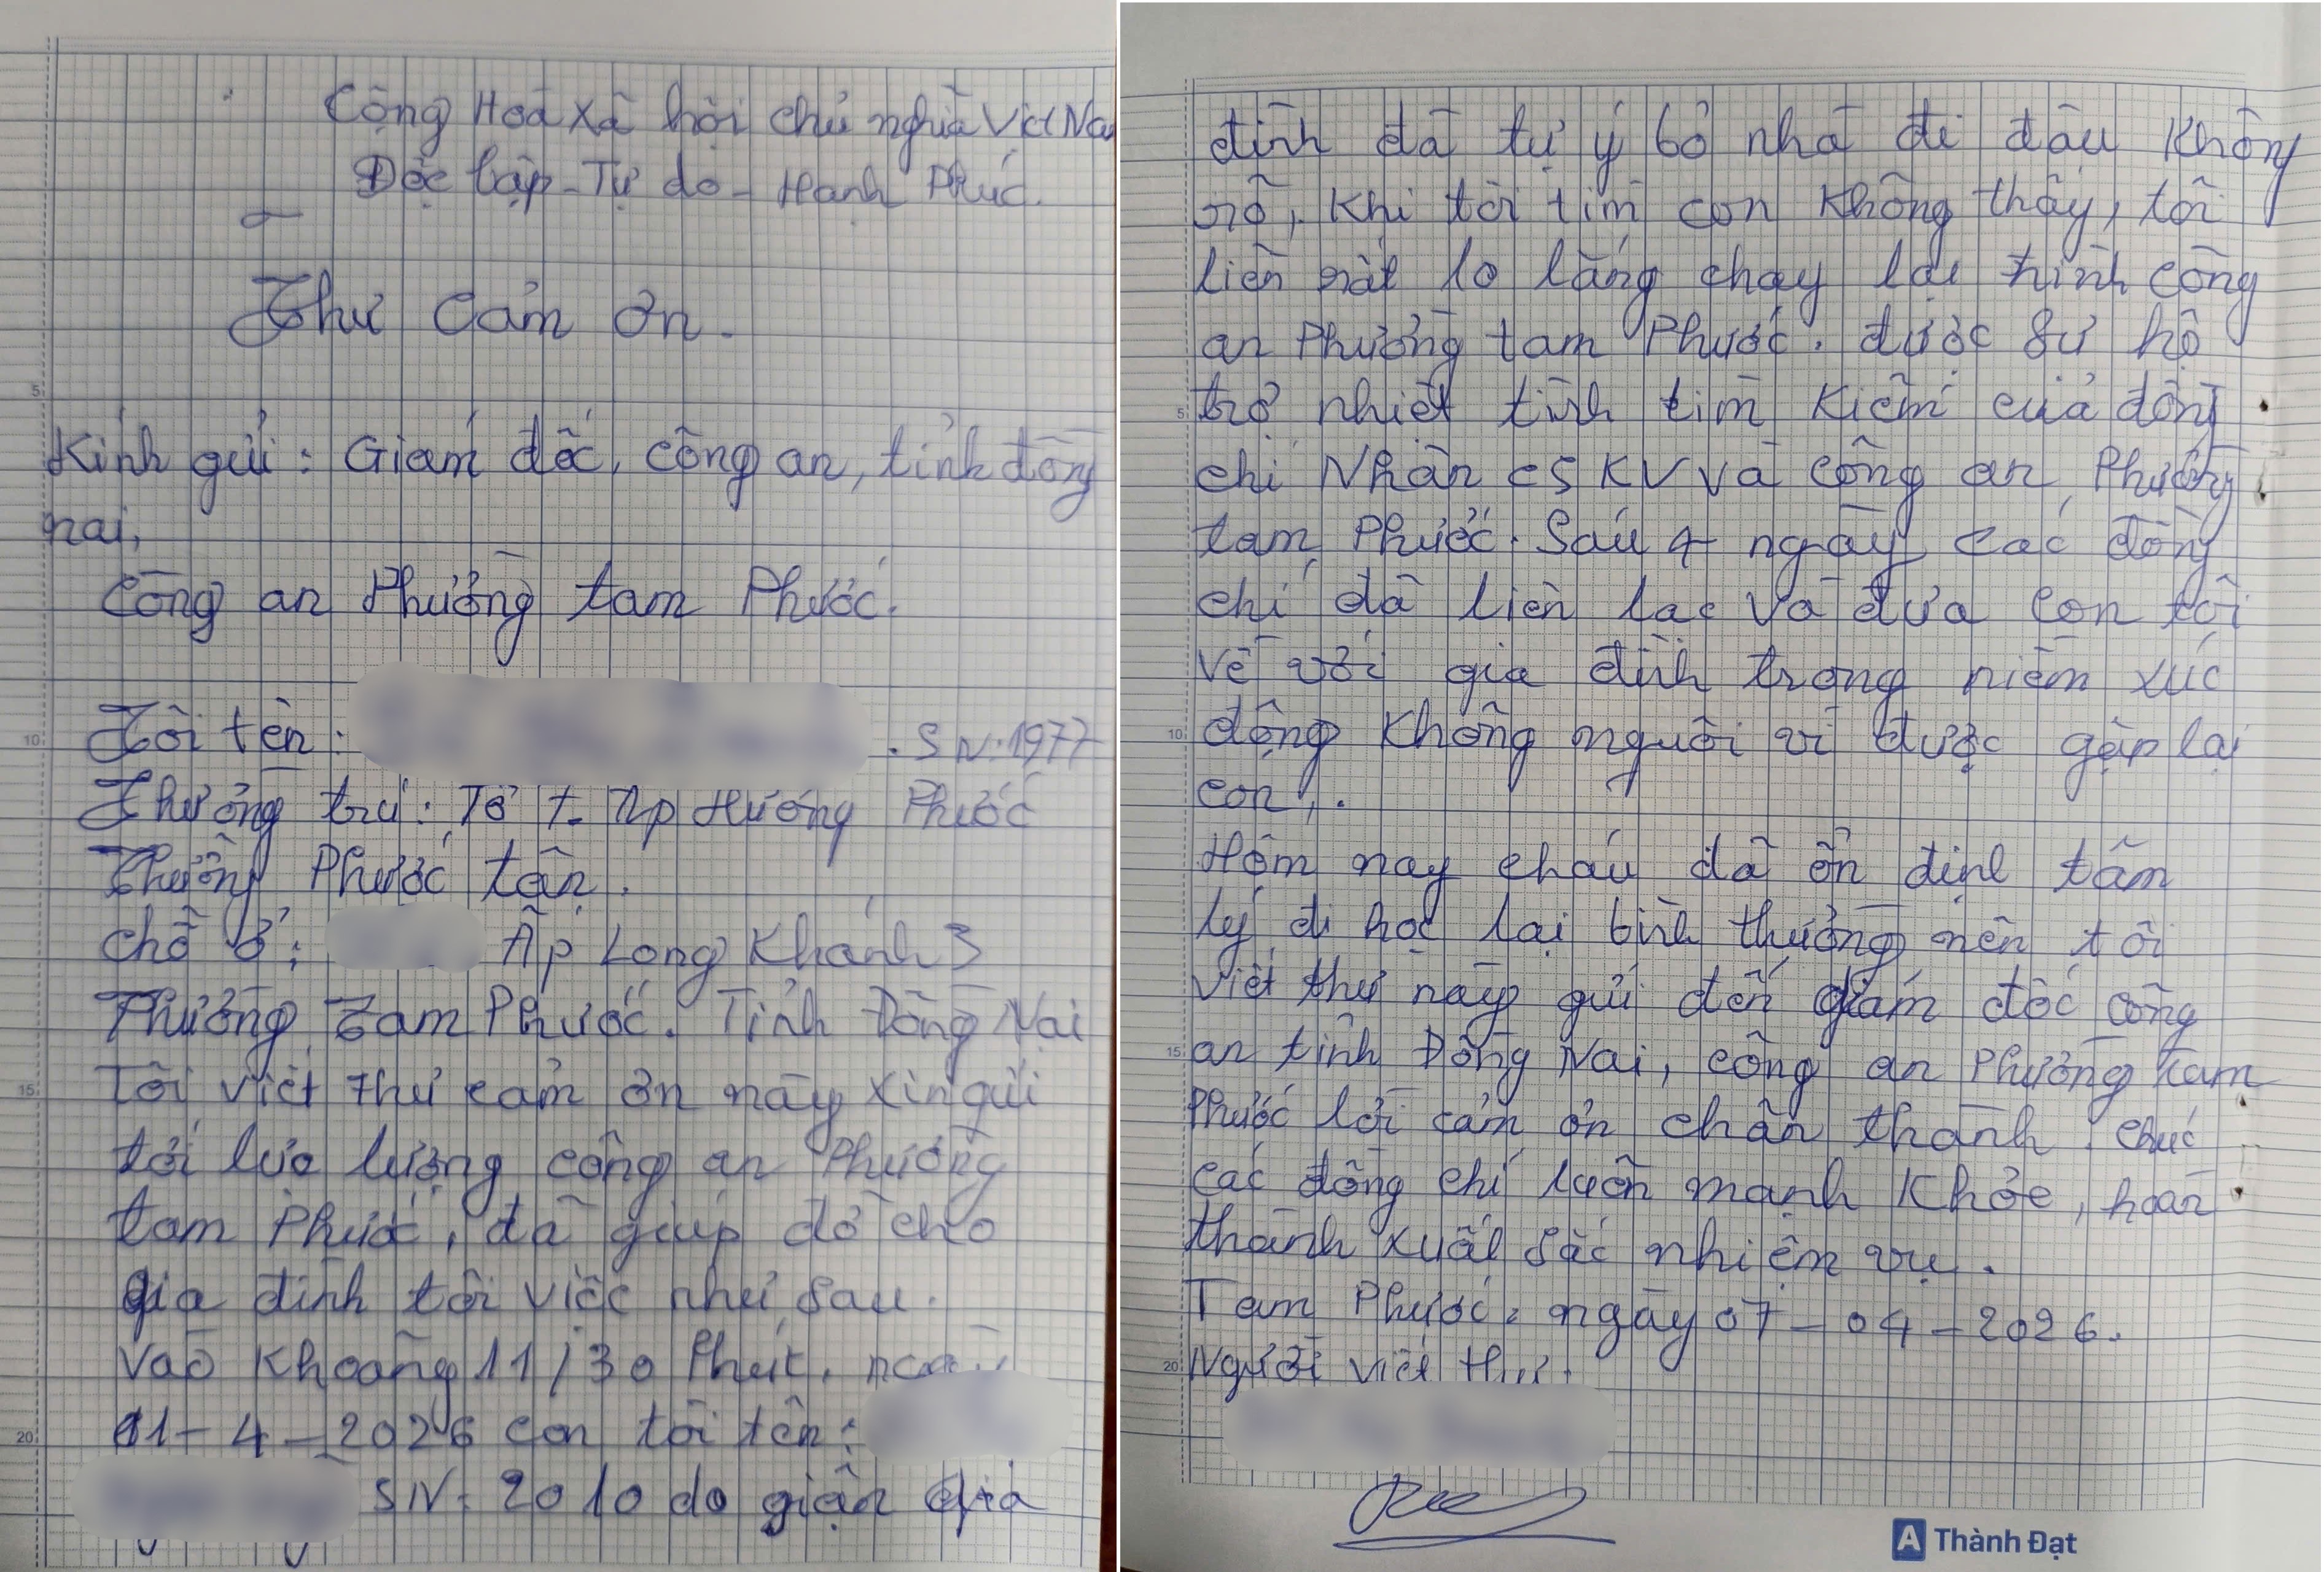 Cộng Hoà Xã hội chủ nghĩa Việt Na
Độc lập - Tự do - Hạnh Phúc.
Thư Cảm ơn.
Kính gửi: Giám đốc, công an, tỉnh đồng
nai,
Công an Phường tam Phước.
Tôi tên: . SN: 1977
Thường trú: Tổ 7- Ấp Hương Phước
Phường Phước tân.
Chỗ ở: Ấp Long Khánh 3
Phường Tam Phước. Tỉnh Đồng Nai
Tôi viết thư cảm ơn này xin gửi
tới lực lượng công an Phường
tam Phước, đã giúp đỡ cho
gia đình tôi việc như sau.
Vào Khoảng 11/30 Phút, ngày
01-4-2026 con tôi tên:
SN: 2010 do giận gia
đình đã tự ý bỏ nhà đi đâu Không
rõ, Khi tôi tìm con Không thấy, tôi
liền rất lo lắng chạy lại trình công
an Phường tam Phước. được sự hỗ
trợ nhiệt tình tìm Kiếm của đồng
chí Nhân CSKV và Công an Phường
tam Phước. Sau 4 ngày các đồng
chí đã liên lạc và đưa con tôi
về với gia đình trong niềm xúc
động Không nguôi vì được gặp lại
con,.
Hôm nay cháu đã ổn định tâm
lý đi học lại bình thường nên tôi
viết thư này gửi đến giám đốc công
an tỉnh Đồng Nai, công an Phường tam
Phước lời cảm ơn chân thành, chúc
các đồng chí luôn mạnh Khỏe, hoàn
thành xuất sắc nhiệm vụ.
Tam Phước, ngày 07-04-2026.
Người viết thư.
A Thành Đạt